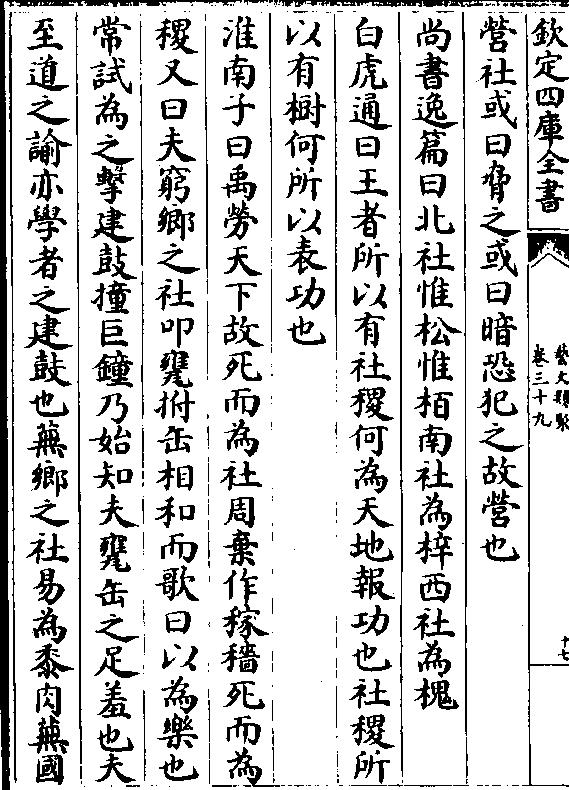 欽定四庫全書
藝文類聚
卷三十九
十七
營社或曰脅之或曰暗恐犯之故營也
尚書逸篇曰北社惟松惟栢南社為梓西社為槐
白虎通曰王者所以有社稷何為天地報功也社稷所
以有樹何所以表功也
淮南子曰禹勞天下故死而為社周棄作稼穡死而為
稷又曰夫窮鄉之社叩甕拊缶相和而歌曰以為樂也
常試為之擊建鼓撞巨鐘乃始知夫甕缶之足羞也夫
至道之諭亦學者之建鼓也蕪鄉之社易為黍肉蕪國